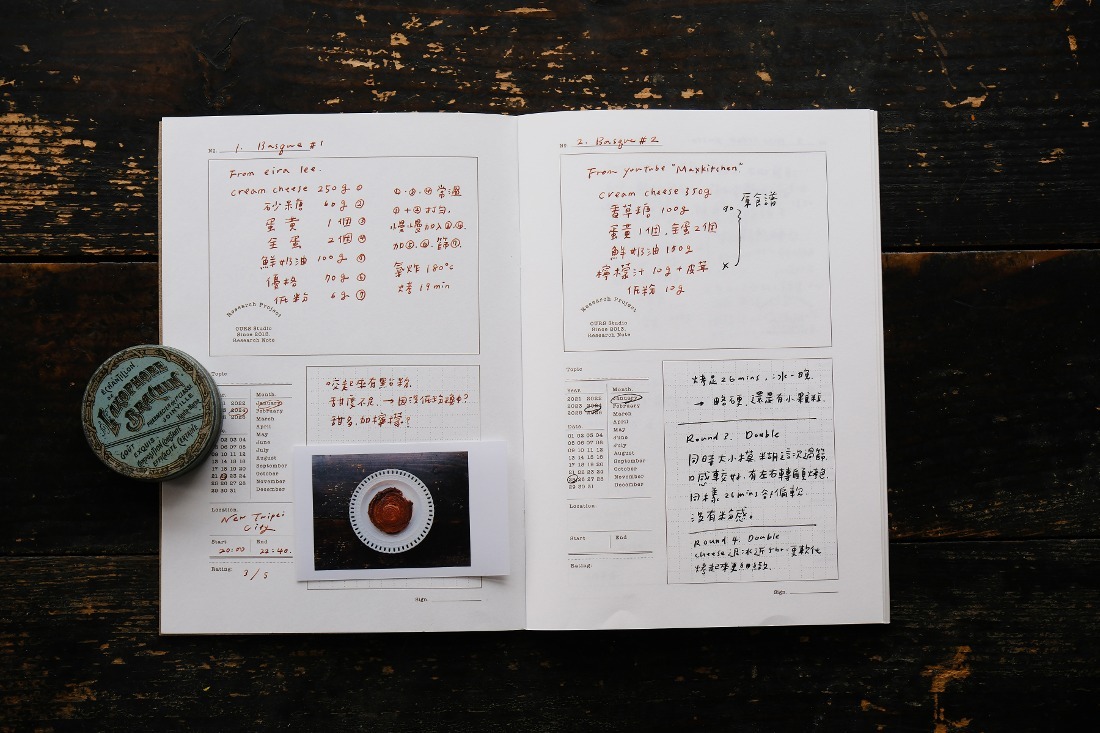 No. 1. Basque #1
From eira lee.
cream cheese 250g ①
砂糖 60g ②
蛋黃 1個 ③
全蛋 2個 ④
鮮奶油 100g ⑤
優格 70g ⑥
低粉 6g ⑦
常溫
①+②打勻,
慢慢加入
加 篩⑦.
氣炸 180°c
烤 19min
Research Project
OURS Studio
Since 2013.
Research Note
Topic
Month.
2021 2022 January
February
March
April
01 02 03 04 May
05 06 07 08 June
09 10 11 12 July
13 14 15 16 August
17 18 19 20 September
21 22 23 24 October
25 26 27 28 November
29 30 31 December
Location
New Taipei
City
Start End
20:00 22:40.
Rating:
3/5
吃起來有點粉.
甜度不足, →因沒低粉
甜多,加檸檬?
Sign.
ESCHANTILLON
SPECIAL
No 2. Basque #2
From youtube "Maxkitchen"
cream cheese 350g
香草糖 100g 90 原食譜
蛋黃1個,全蛋2個
鮮奶油 150g
檸檬汁 10g + 皮 x
低粉 10g
Research Project
OURS Studio
Since 2013.
Research Note
Topic
Year. Month.
2021 2022 January
2023 2024 February
2025 2026 March
April
01 02 03 04 May
05 06 07 08 June
09 10 11 12 July
13 14 15 16 August
17 18 19 20 September
21 22 23 24 October
25 26 27 28 November
29 30 31 December
Location:
Start End
Rating:
烤足26mins,冰一晚.
→ 略硬,還是有小顆粒.
Round 2. Double
同時大小模 這次過篩,
口感較好,有左右轉
同樣26mins 偏軟
沒有粉感。
Round 4. Double
cheese退冰近5hr.更軟化
烤起來更
Sign.